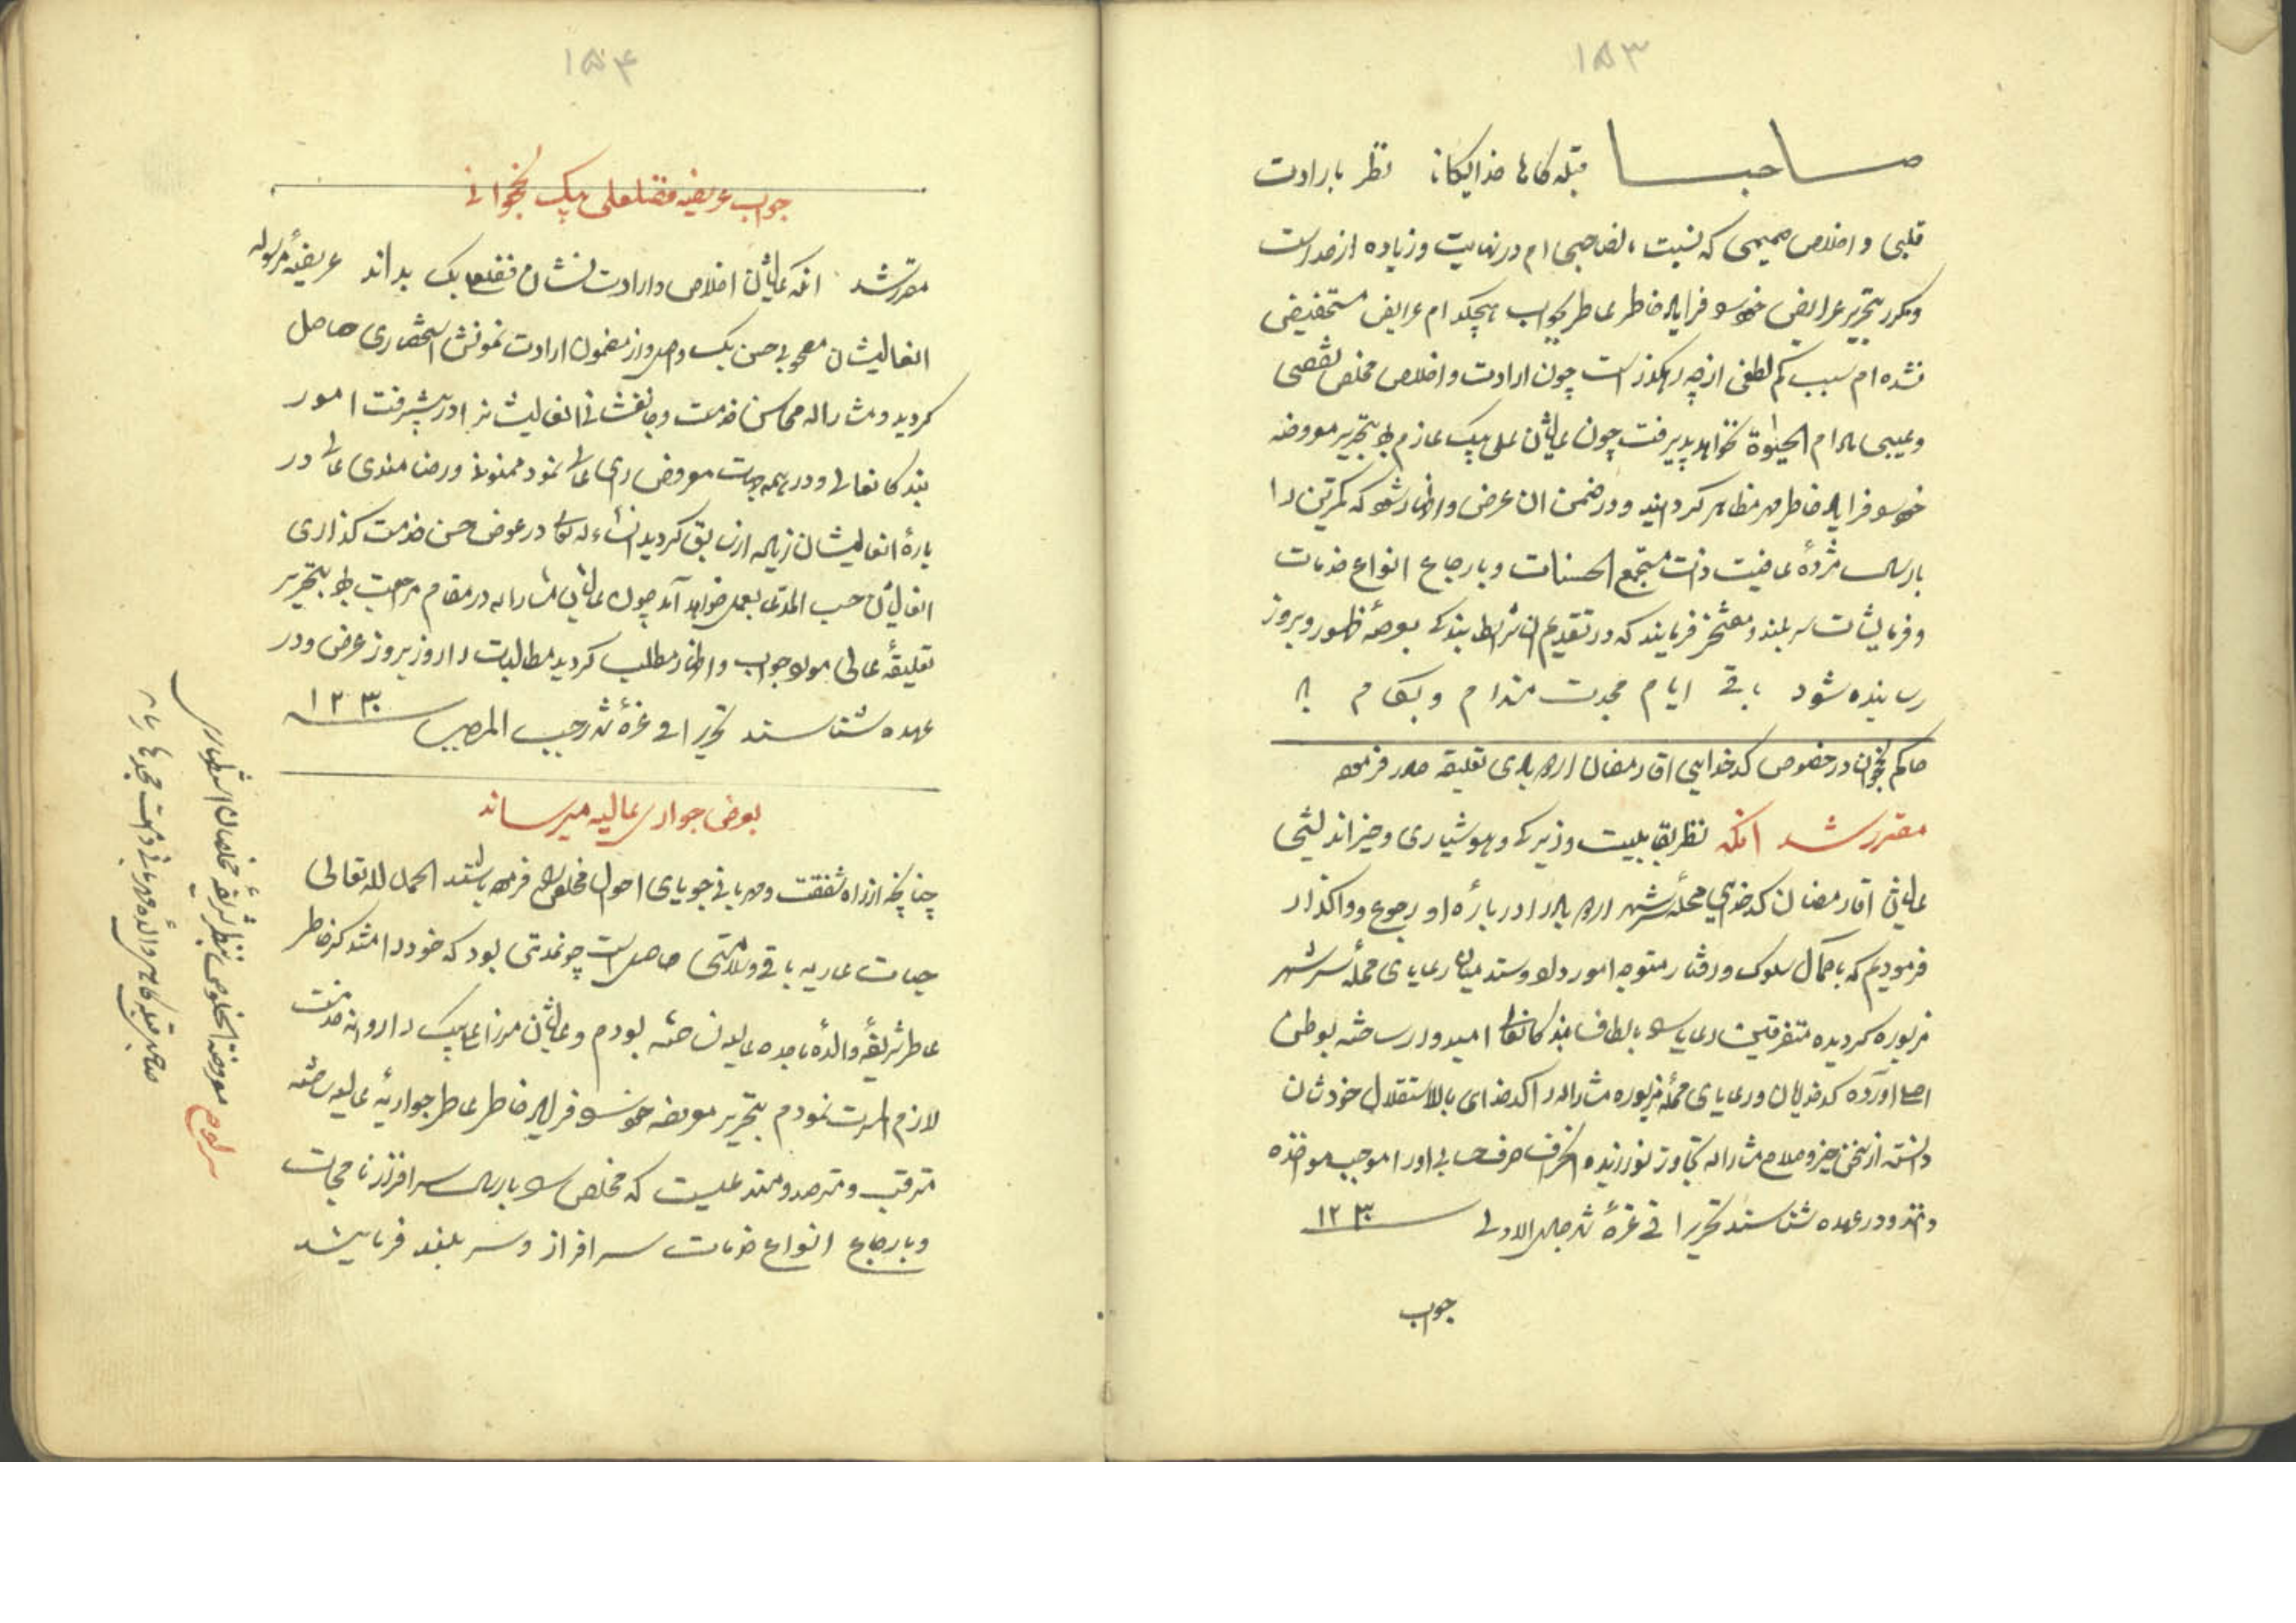 ۱۵۳
صاحبا قبله گاها خدایگانا نظر بارادت
قلبی و اخلاص صمیمی که نسبت بصاحبی ام در نهایت و زیاده از حد است
و مکرر بتحریر عرایض خود فرای خاطر عاطر بجواب هیچکدام عرایض مستحفیض
نشده ام سبب کم لطفی از چه رهگذر است چون ارادت و اخلاص مخلص نقصی
و عیبی مادام الحیوة نخواهد پذیرفت چون عالیشان علی بیک عازم بود بتحریر معروضه
خاطر مهر مظاهر گردانید و در ضمن ان عرض و اظهار شود که کمترین را
بارسال مژدهٔ عافیت ذات مستجمع الحسنات و بارجاع انواع خدمات
و فرمایشات سربلند و مفتخر فرمایند که در تقدیم ان شرایط بندگی بعرصهٔ ظهور و بروز
رسانیده شود باقی ایام مجدت مدام و بکام باد
حاکم نخجوان در خصوص کدخدایی اقا رمضان اردوبادی تعلیقه صادر فرموده
مقرر شد انکه نظر بقابلیت و زیرکی و هوشیاری و خیراندیشی
عالیشان اقا رمضان کدخدایی محله سرشهر اردوباد را دربارهٔ او رجوع و واگذار
فرمودیم که با کمال سلوک و رفتار متوجه امور داد و ستد میان رعایای محله سرشهر
مزبوره گردیده متفرقین رعایا را بالطاف بندگانعالی امیدوار ساخته بوطن
اصلی اورده کدخدایان و رعایای محله مزبوره مشارالیه را کدخدای بالاستقلال خودشان
دانسته از سخن خیر و صلاح مشارالیه تجاوز نورزیده انحراف حرف حسابی او را موجب مواخذه
دانند و در عهده شناسند تحریرا فی غرهٔ شهر جمادی الاولی ۱۲۳۰
جواب
۱۵۴
جواب عریضه فضلعلی بیک نخجوانی
مقرر شد انکه عالیشان اخلاص و ارادت نشان فضلعلی بیک بداند عریضهٔ مرسوله
انعالیشان مصحوبی حسن بیک واصل و از مضمون ارادت نمونش استحضاری حاصل
گردید و مشارالیه محاسن خدمت و جانفشانی انعالیشانرا در پیشرفت امور
بندگانعالی و در همه جهت معروض رای عالی نمود ممنونیت و رضامندی عالی در
بارهٔ انعالیشان زیاده از سابق گردید انشاء الله تعالی در عوض حسن خدمت گذاری
انعالیشان حسب المدعی بعمل خواهد آمد چون عالیشان مشارالیه در مقام مراجعت بود بتحریر
تعلیقهٔ عالی مواد جواب و اظهار مطلب گردید مطالبات را روز بروز عرض و در
عهده شناسند تحریرا فی غرهٔ شهر رجب المرجب ۱۲۳۰
بعرض جواری عالیه میرساند
چنانچه از راه شفقت و مهربانی جویای احوال مخلص فرموده باشند الحمد لله تعالی
حیات عاریه باقی و سلامتی حاصل است چونمدتی بود که خود را متذکر خاطر
عاطر شریفهٔ والدهٔ ماجده عالیه نساخته بودم و عالیشان مرزا علی بیک را روانه خدمت
لازم المسرت نمودم بتحریر معروضه خاطر عاطر جواریهٔ عالیه ساخته
مترقب و مترصد و مستدعیست که مخلص را بارسال سرافراز نامجات
و بارجاع انواع خدمات سرافراز و سربلند فرمایند
سرلوح معروضة الخلوص بنظر شریفهٔ مخلصان استظهاری
صاحبی قبله گاهی والدهٔ مهربانی مجدت